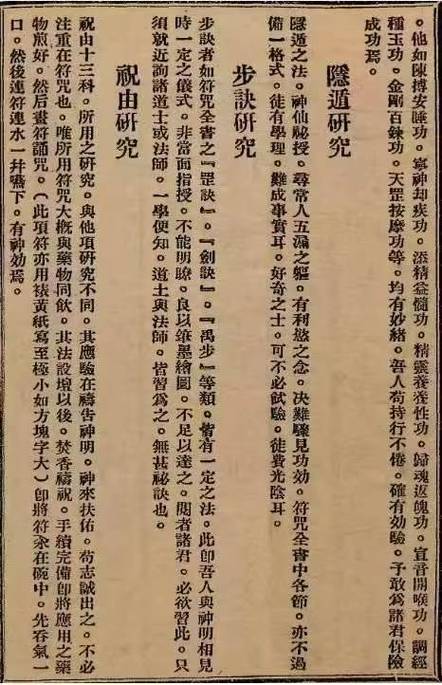 。他如陳摶安睡功。寧神却疾功。添精益髓功。精靈養養性功。歸魂返魄功。宣音開喉功。調經
種玉功。金剛百鍊功。天罡按摩功等。均有妙緒。吾人苟持行不倦。確有効驗。予敢爲諸君保險
成功焉。
隱遁研究
隱遁之法。神仙秘授。尋常人五漏之軀。有利慾之念。决難驟見功効。符咒全書中各節。亦不過
備一格式。徒有學理。難成事實耳。好奇之士。可不必試驗。徒費光陰耳。
步訣研究
步訣者如符咒全書之『罡訣』。『劍訣』。『禹步』等類。皆有一定之法。此卽吾人與神明相見
時一定之儀式。非當面指授。不能明瞭。良以筆墨繪圖。不足以達之。閱者諸君。必欲習此。只
須就近詢諸道士或法師。一學便知。道士與法師。皆習爲之。無甚祕訣也。
祝由研究
祝由十三科。所用之研究。與他項研究不同。其應驗在禱告神明。神來扶佑。苟志誠出之。不必
注重在符咒也。唯所用符咒大概與藥物同飲。其法設壇以後。焚香禱祝。手續完備卽將應用之藥
物煎好。然后畫符誦咒。(此項符亦用裱黃紙寫至極小如方塊字大)卽將符汆在碗中。先吞氣一
口。然後連符連水一幷嚥下。有神効焉。